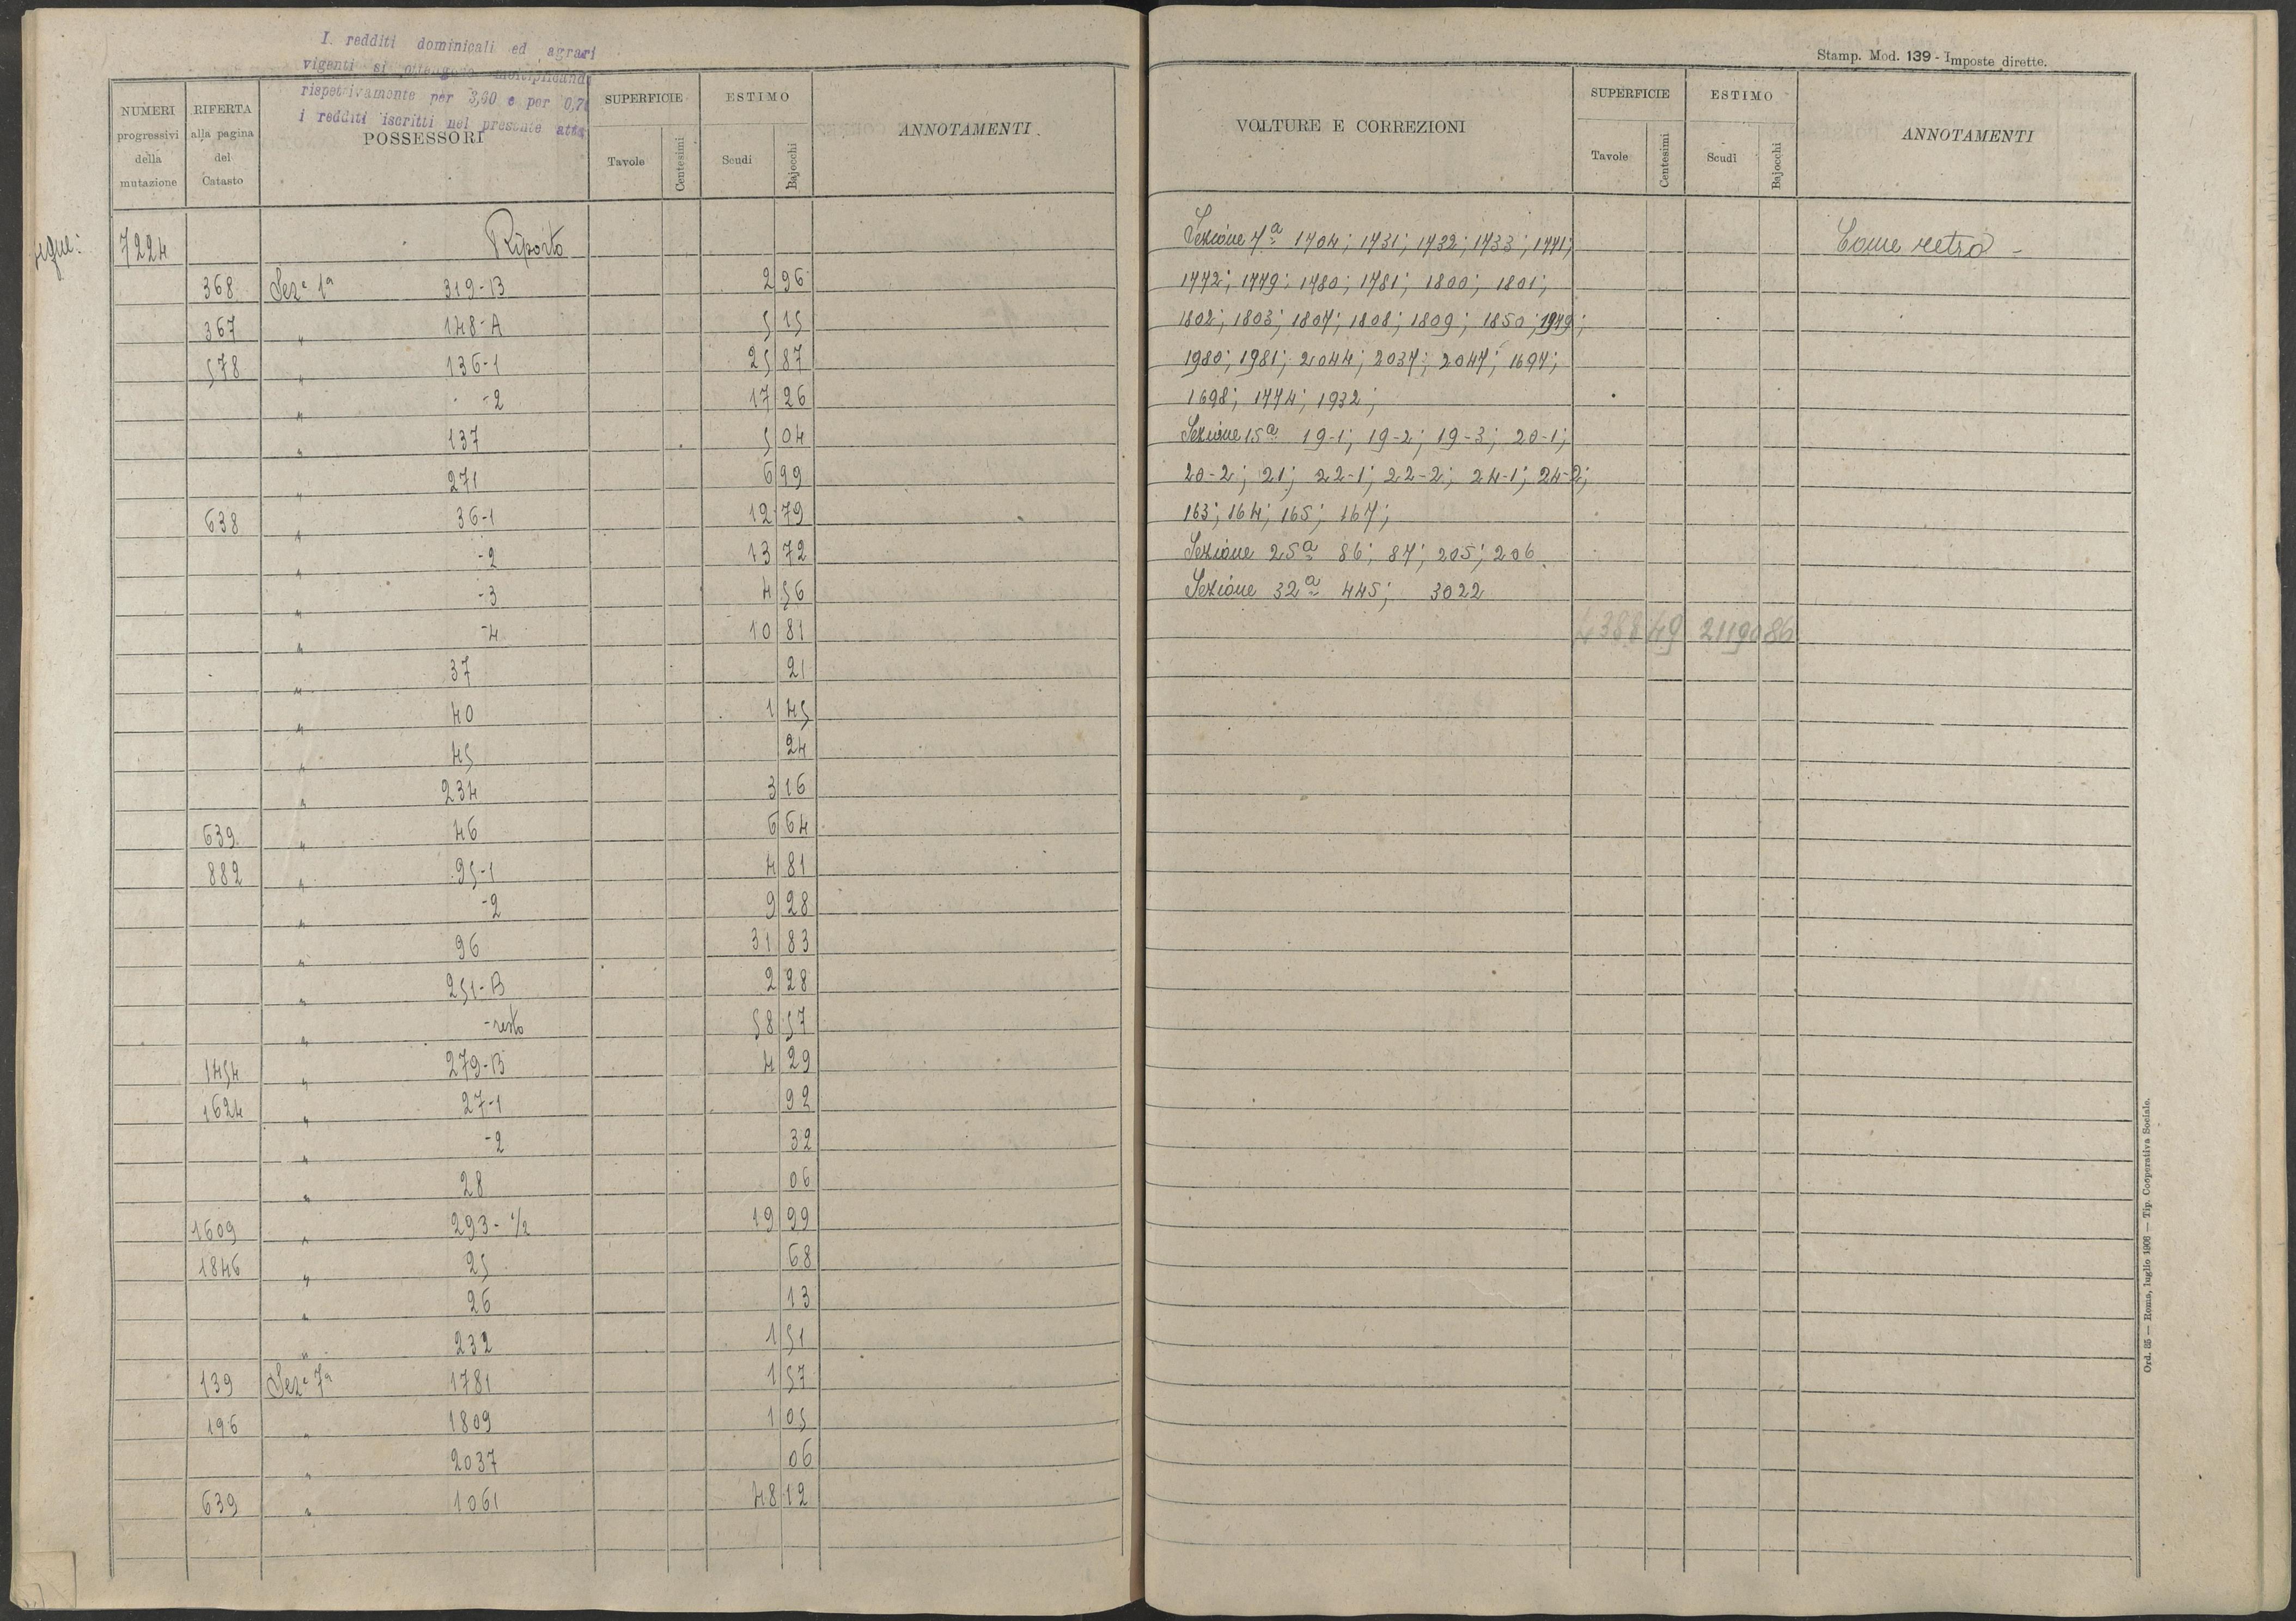 I redditi dominicali ed agrari
vigenti si ottengono moltiplicando
rispettivamente per 3,60 e per 0,70
i redditi iscritti nel presente atto
NUMERI progressivi della mutazione
RIFERTA alla pagina del Catasto
POSSESSORI
SUPERFICIE
Tavole
Centesimi
ESTIMO
Scudi
Bajocchi
ANNOTAMENTI
segue: 7224 Riporto
368 Sez.e 1a 319-B 2 96
367 " 148-A 5 15
578 " 136-1 25 87
" -2 17 26
" 137 5 04
" 271 6 99
638 " 36-1 12 79
" -2 13 72
" -3 4 56
" -4 10 81
" 37 21
" 40 1 45
" 45 24
" 234 3 16
639 " 46 6 64
882 " 95-1 4 81
" -2 9 28
" 96 31 83
" 251-B 2 28
" -resto 58 57
1454 " 279-B 4 29
1624 " 27-1 92
" -2 32
" 28 06
1609 " 293-1/2 19 99
1846 " 25 68
" 26 13
" 232 1 51
139 Sez.e 7a 1781 1 57
196 " 1809 1 05
" 2037 06
639 " 1061 48 12
Stamp. Mod. 139 - Imposte dirette.
VOLTURE E CORREZIONI
SUPERFICIE
Tavole
Centesimi
ESTIMO
Scudi
Bajocchi
ANNOTAMENTI
Sezione 7a 1704; 1731; 1732; 1733; 1771; Come retro -
1772; 1779; 1780; 1781; 1800; 1801;
1802; 1803; 1807; 1808; 1809; 1850; 1979;
1980; 1981; 2044; 2037; 2047; 1697;
1698; 1774; 1932;
Sezione 15a 19-1; 19-2; 19-3; 20-1;
20-2; 21; 22-1; 22-2; 24-1; 24-2;
163; 164; 165; 167;
Sezione 25a 86; 87; 205; 206
Sezione 32a 445; 3022
4388 49 2119 086
Ord. 35 — Roma, luglio 1906 — Tip. Cooperativa Sociale.